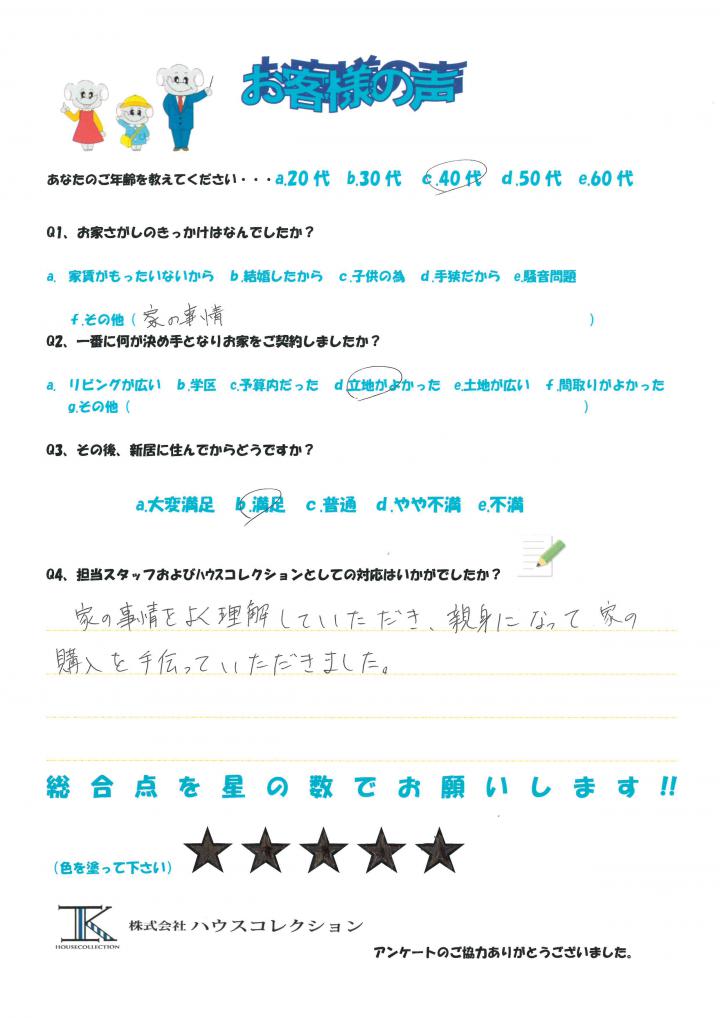 お客様の声
あなたのご年齢を教えてください・・・a.20代 b.30代 c.40代 d.50代 e.60代
Q1、お家さがしのきっかけはなんでしたか?
a. 家賃がもったいないから b.結婚したから c.子供の為 d.手狭だから e.騒音問題
f.その他（ 家の事情 ）
Q2、一番に何が決め手となりお家をご契約しましたか?
a. リビングが広い b.学区 c.予算内だった d立地がよかった e.土地が広い f.間取りがよかった
g.その他（ ）
Q3、その後、新居に住んでからどうですか?
a.大変満足 b.満足 c.普通 d.やや不満 e.不満
Q4、担当スタッフおよびﾊｳｽコレクションとしての対応はいかがでしたか?
家の事情をよく理解していただき、親身になって家の
購入を手伝っていただきました。
総合点を星の数でお願いします!!
（色を塗って下さい） ★★★★★
HOUSECOLLECTION 株式会社 ハウスコレクション
アンケートのご協力ありがとうございました。